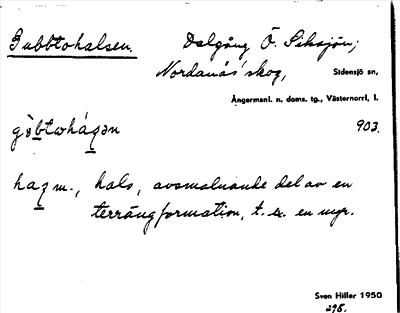 Gubbtohalsen. Dalgång Ö. Siksjön;
Nordanås' skog, Sidensjö sn,
Ångermanl. n. doms. tg., Västernorrl. l.
903.
haʒ m., hals, avsmalnande del av en
terrängformation, t. ex. en myr.
Sven Hiller 1950
298.